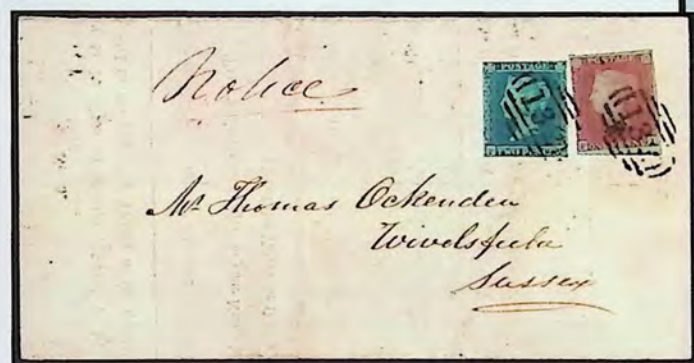 Notice
POSTAGE
TWO PENCE
Mr Thomas Ockenden
Wivelsfield
Sussex